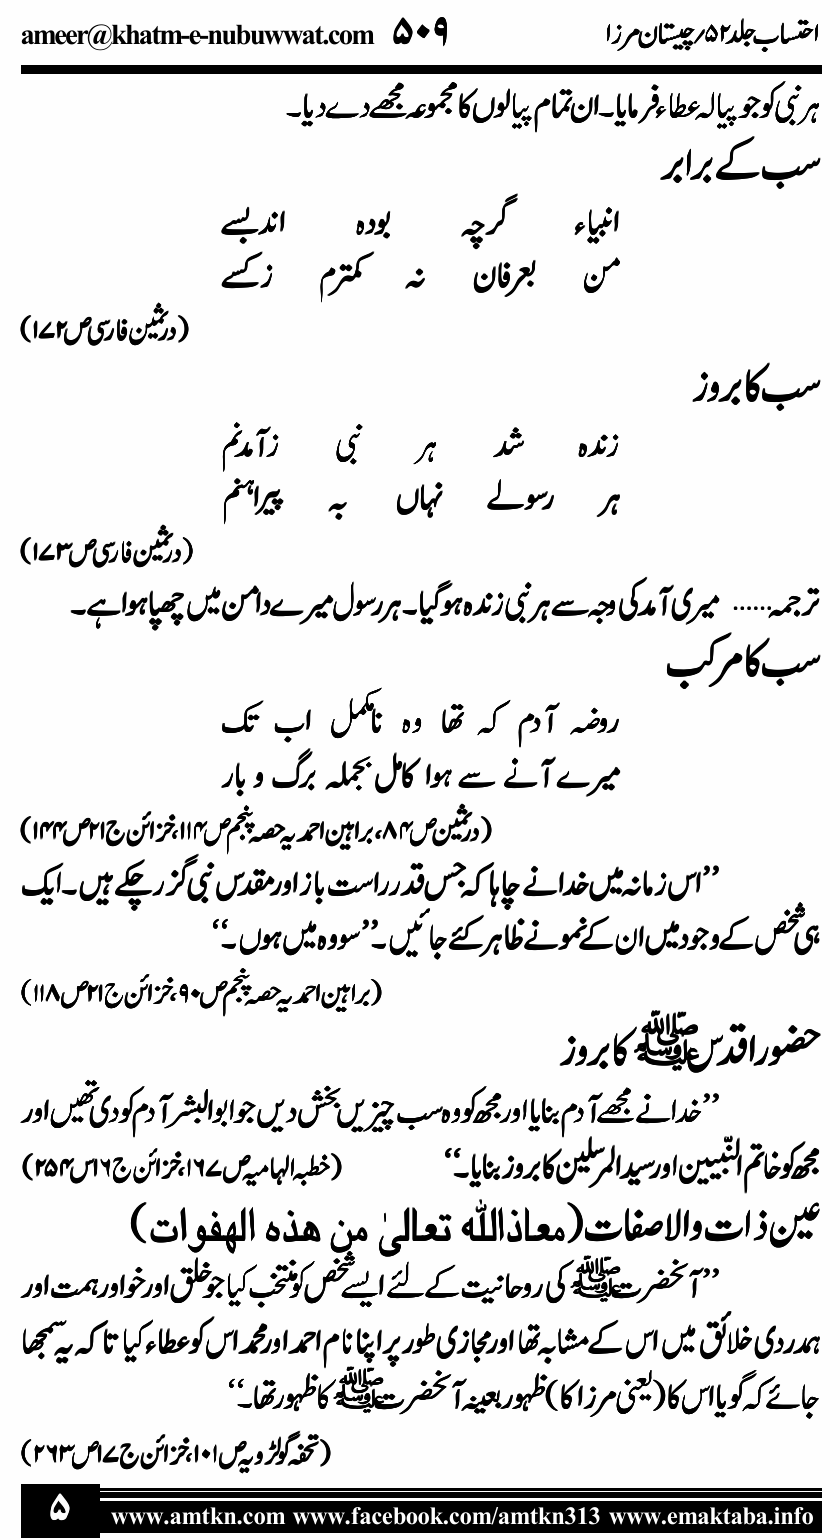 ameer@khatm-e-nubuwwat.com ۵۰۹ احتساب جلد۵۲؍چیستان مرزا
ہر نبی کو جو پیالہ عطاء فرمایا۔ ان تمام پیالوں کا مجموعہ مجھے دے دیا۔
سب کے برابر
انبیاء گرچہ بودہ اند بسے
من بعرفان نہ کمترم زکسے
(درثمین فارسی ص۱۷۲)
سب کا بروز
زندہ شد ہر نبی زآمدنم
ہر رسولے نہاں بہ پیراہنم
(درثمین فارسی ص۱۷۳)
ترجمہ...... میری آمد کی وجہ سے ہر نبی زندہ ہوگیا۔ ہر رسول میرے دامن میں چھپا ہوا ہے۔
سب کا مرکب
روضہ آدم کہ تھا وہ نامکمل اب تک
میرے آنے سے ہوا کامل بجملہ برگ و بار
(درثمین ص۸۴، براہین احمدیہ حصہ پنجم ص۱۱۴، خزائن ج۲۱ ص۱۴۴)
’’اس زمانہ میں خدا نے چاہا کہ جس قدر راست باز اور مقدس نبی گزر چکے ہیں۔ ایک
ہی شخص کے وجود میں ان کے نمونے ظاہر کئے جائیں۔‘‘ سو وہ میں ہوں۔‘‘
(براہین احمدیہ حصہ پنجم ص۹۰، خزائن ج۲۱ ص۱۱۸)
حضور اقدس ﷺ کا بروز
’’خدا نے مجھے آدم بنایا اور مجھ کو وہ سب چیزیں بخش دیں جو ابوالبشر آدم کو دی تھیں اور
مجھ کو خاتم النّبیین اور سید المرسلین کا بروز بنایا۔‘‘ (خطبہ الہامیہ ص۱۶۷، خزائن ج۱۶ س۲۵۴)
عین ذات والا صفات (معاذاللہ تعالیٰ من هذه الهفوات)
’’آنحضرت ﷺ کی روحانیت کے لئے ایسے شخص کو منتخب کیا جو خلق اور خو اور ہمت اور
ہمدردی خلائق میں اس کے مشابہ تھا اور مجازی طور پر اپنا نام احمد اور محمد اس کو عطاء کیا تا کہ یہ سمجھا
جائے کہ گویا اس کا (یعنی مرزا کا) ظہور بعینہ آنحضرت ﷺ کا ظہور تھا۔‘‘
(تحفہ گولڑویہ ص۱۰۱، خزائن ج۱۷ ص۲۶۳)
۵ www.amtkn.com www.facebook.com/amtkn313 www.emaktaba.info